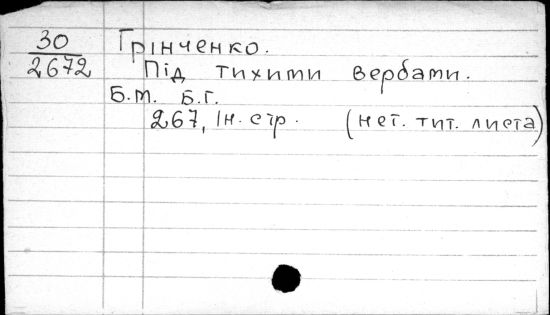 30
2672
Грінченко.
Під тихими вербами.
Б.м. Б.г.
267, Ін. стр. (нет. тит. листа)